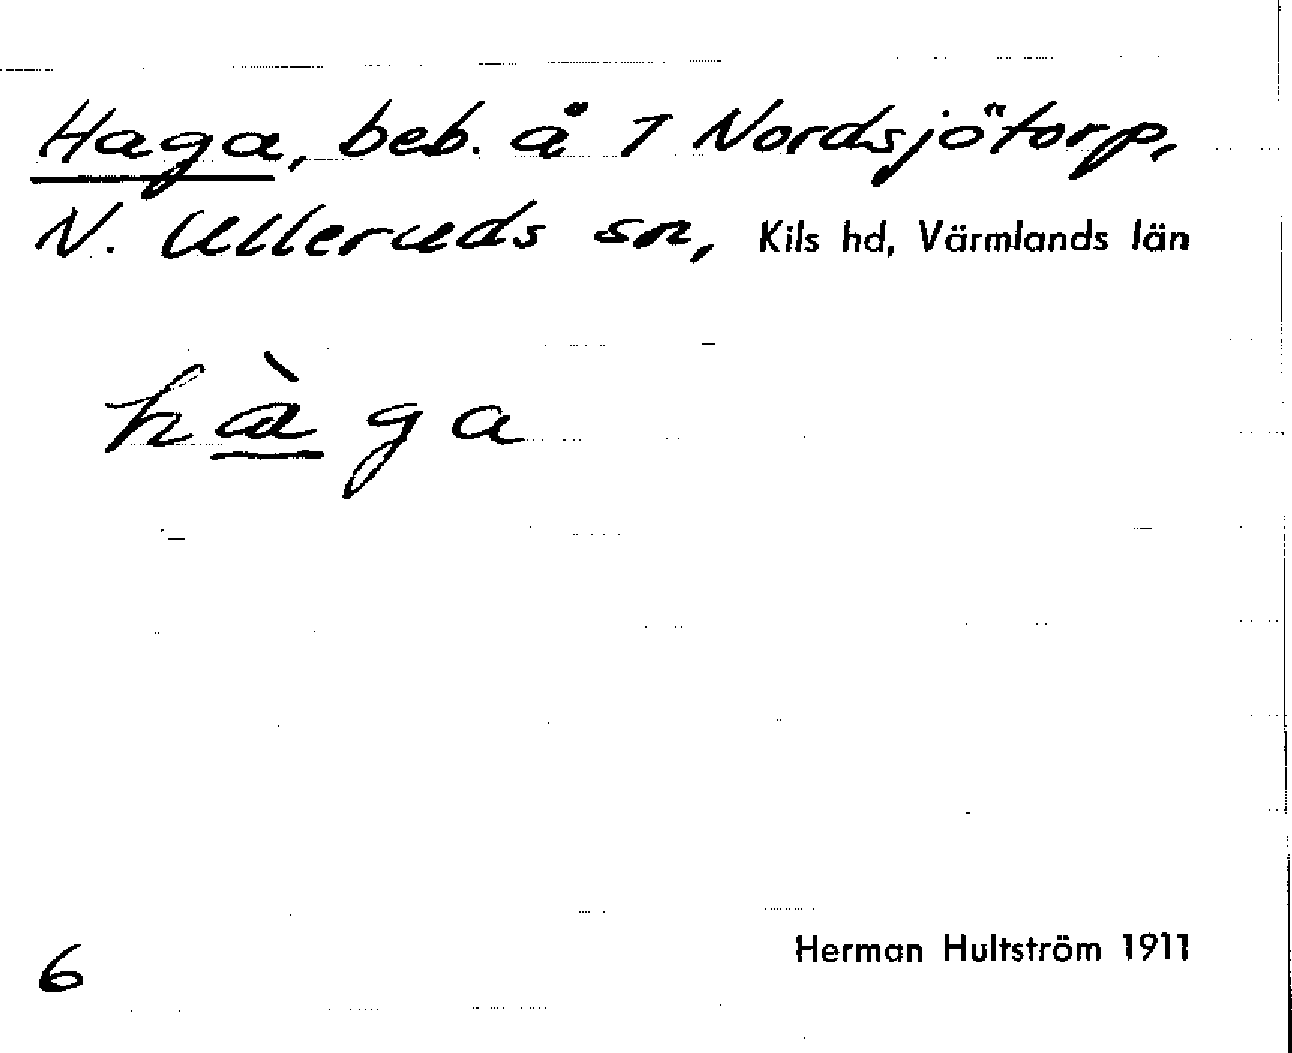 Haga, beb. å 1 Nordsjötorp,
N. Ulleruds sn, Kils hd, Värmlands län
hàga
6
Herman Hultström 1911